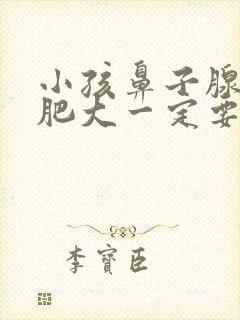 小孩鼻子腺
肥大一定要
李寳臣